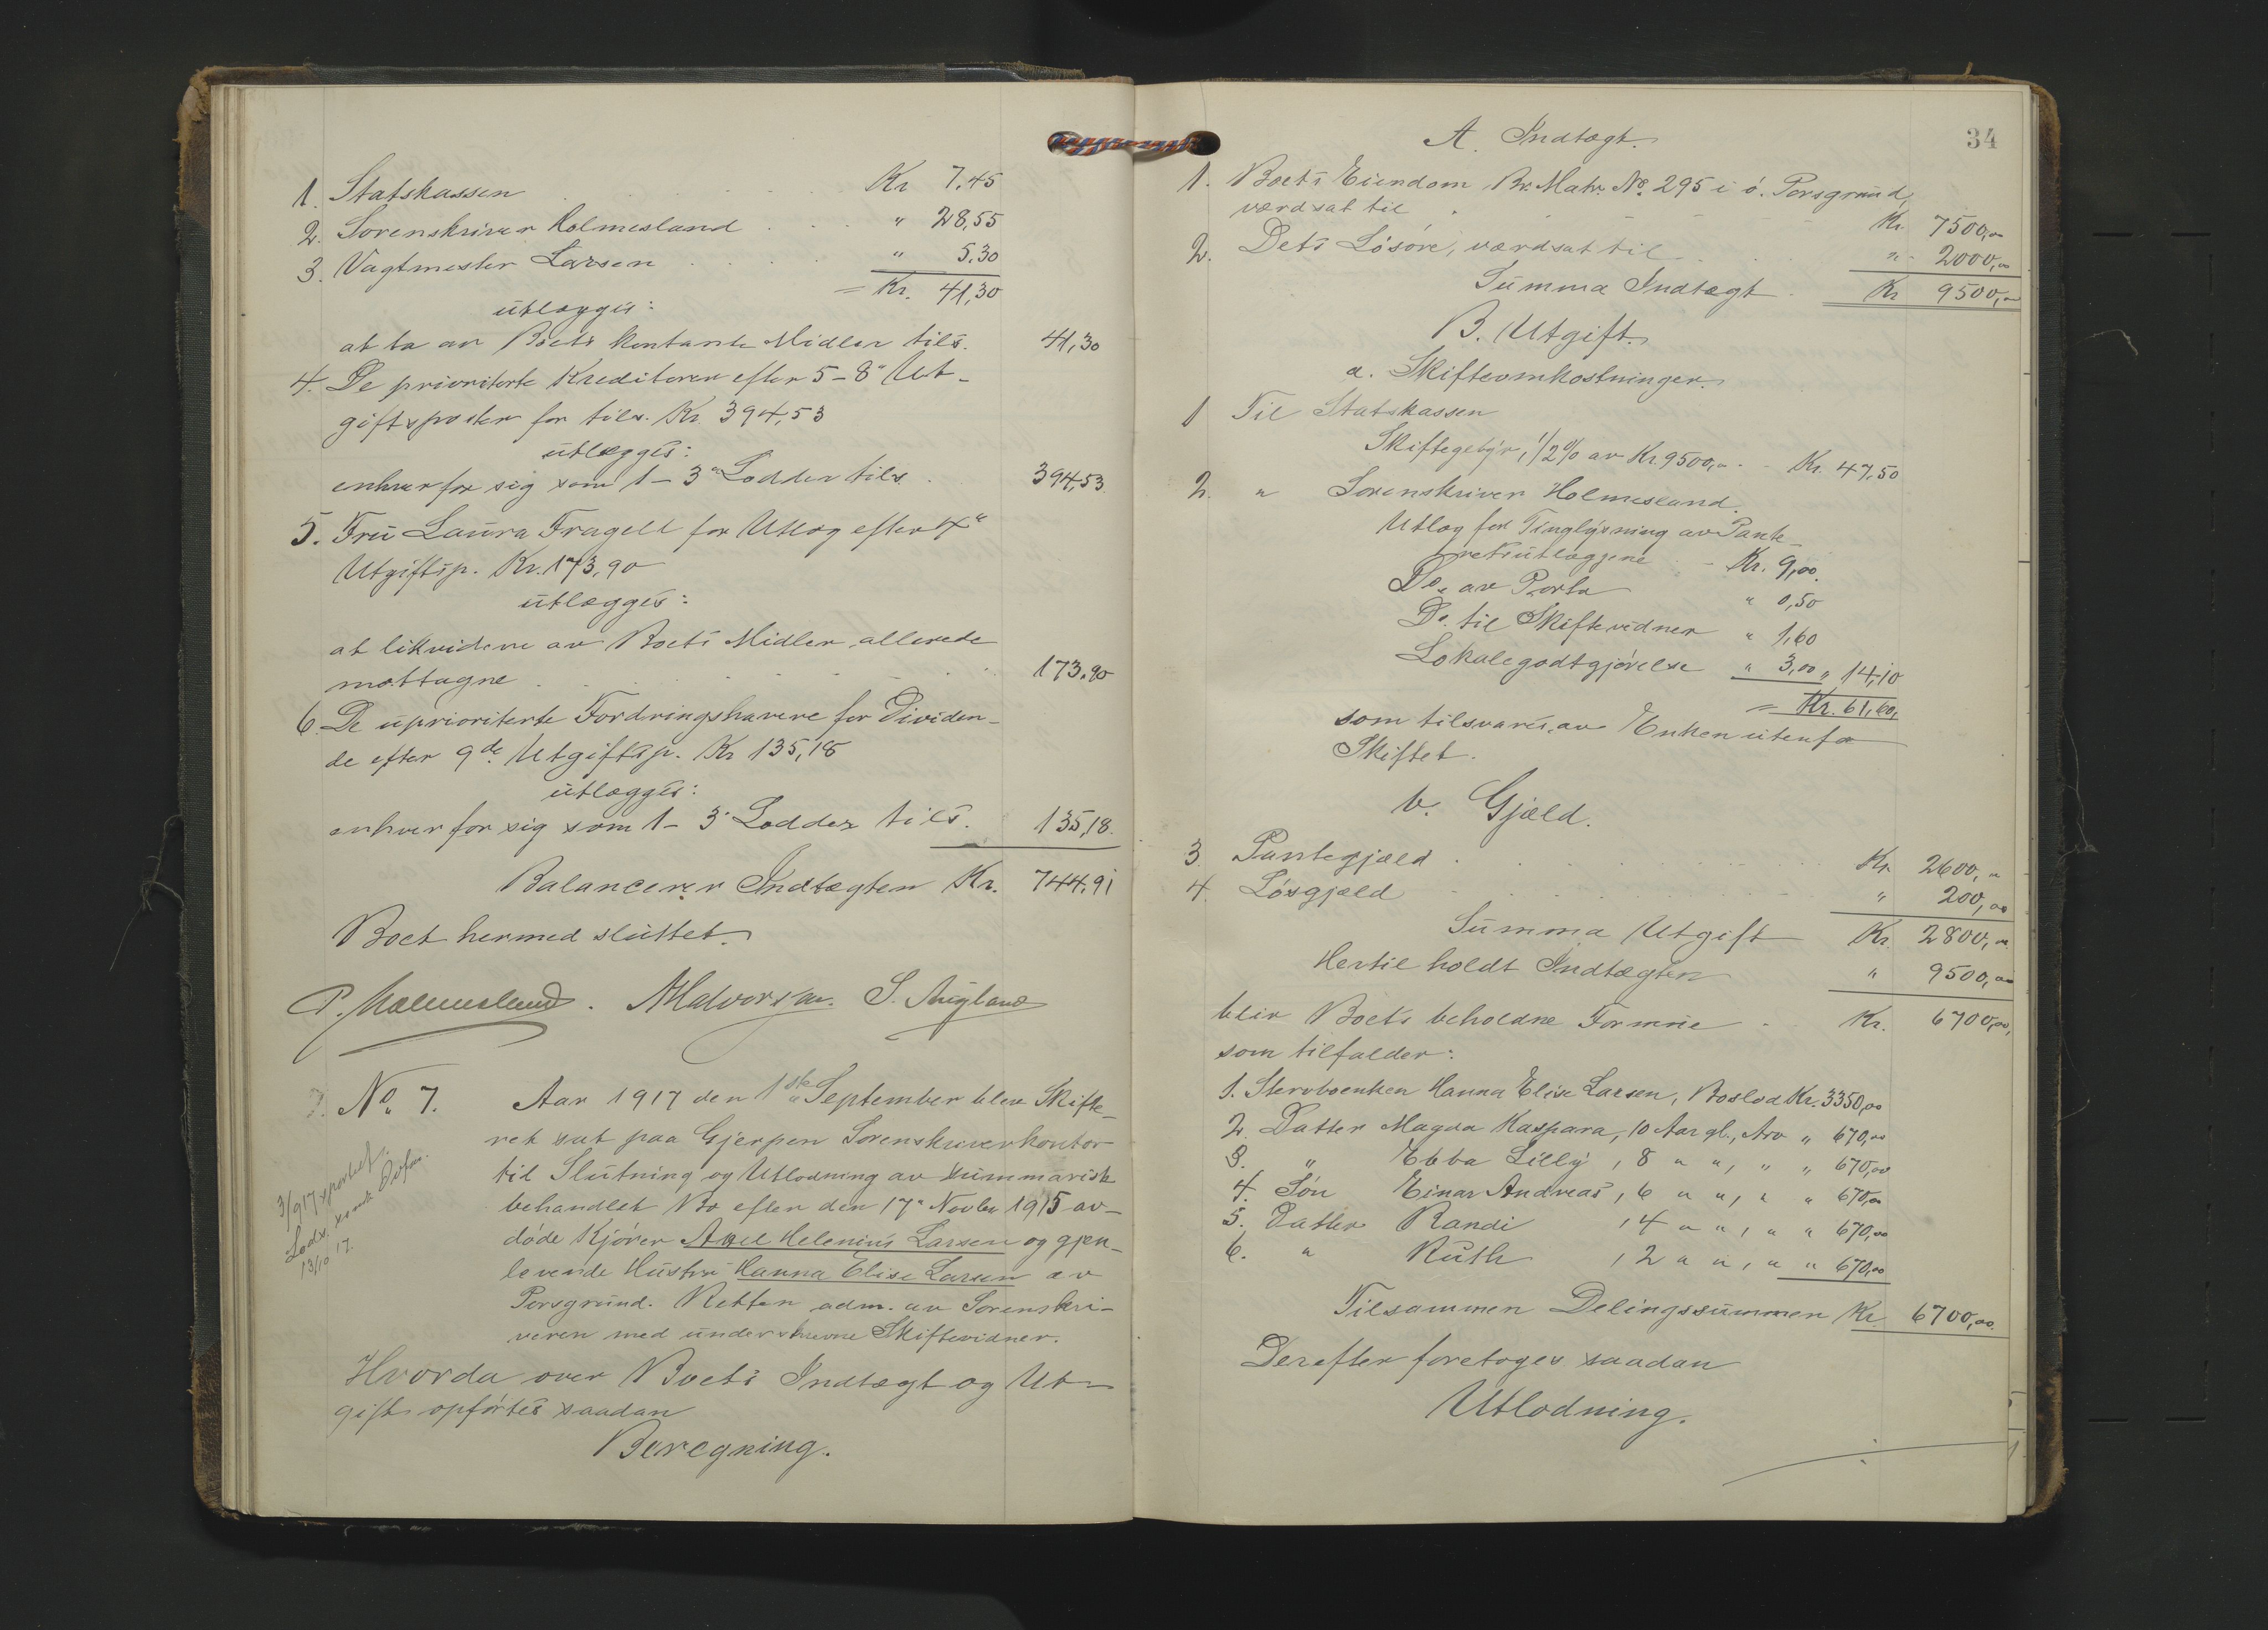 1. Statskassen Kr 7,45
2. Sorenskriver Holmesland " 28,55
3. Vagtmester Larsen " 5,30
= Kr. 41,30
utlægges:
at ta av Boets kontante Midler tils. 41,30
4. De prioriterte Kreditorer efter 5-8" Ut-
giftsposter for tils. Kr. 394,53
utlægges:
enhver for sig som 1-3" Lodder tils. 394,53
5. Fru Laura Fragell for Utlæg efter 4"
Utgiftsp. Kr. 173,90
utlægges:
at likvidere av Boets Midler allerede
mottagne 173,90
6. De uprioriterte Fordringshavere for Dividen-
de efter 9de Utgiftsp. Kr 135,18
utlægges:
enhver for sig som 1-3" Lodder tils. 135,18
Balancerer Indtægten Kr. 744,91
Boet hermed sluttet.
P. Holmesland. Halvorsen. S. Augland
No. 7. Aar 1917 den 1ste September blev Skifte-
ret sat paa Gjerpen Sorenskriverkontor
til Slutning og Utlodning av summarisk
behandlet Bo efter den 17" Novbr 1915 av-
døde Kjører Axel Helenius Larsen og gjen-
levende Hustru Hanna Elise Larsen av
Porsgrund. Retten adm. av Sorenskri-
veren med underskrevne Skiftevidner.
3/917
13/10 17.
Hvorda over Boets Indtægt og Ut-
gift opførtes saadan
Beregning.
34
A. Indtægt.
1. Boets Eiendom Br. Matr. No. 295 i ø. Porsgrund,
værdsat til Kr. 7500,00
2. Dets Løsøre, værdsat til " 2000,00
Summa Indtægt Kr 9500,00
B. Utgift.
a. Skifteomkostninger.
1 Til Statskassen
Skiftegebyr, 1/2% av Kr. 9500,00 Kr. 47,50
2. " Sorenskriver Holmesland.
Utlæg for Tinglysning av Pante-
retsutlæggene Kr. 9,00
Do. av Porto " 0,50
Do. til Skiftevidner " 1,60
Lokalegodtgjørelse " 3,00 " 14,10
= Kr. 61,60,
som tilsvares av Enken utenfor
Skiftet.
b. Gjæld.
3. Pantegjæld Kr. 2600,00
4. Løsgjæld " 200,00
Summa Utgift Kr. 2800,00
Hertil holdt Indtægten " 9500,00
blir Boets beholdne Formue Kr. 6700,00,
som tilfalder:
1. Stervboenken Hanna Elise Larsen, Boslod Kr. 3350,00
2. Datter Magda Kaspara, 10 Aar gl., Arv " 670,00
3. " Ebba Lilly, 8 " ", " " 670,00
4. Søn Einar Andreas, 6 " ", " " 670,00
5. Datter Randi, 4 " ", " " 670,00
6. " Ruth, 2 " ", " " 670,00
Tilsammen Delingssummen Kr. 6700,00.
Derefter foretoges saadan
Utlodning.